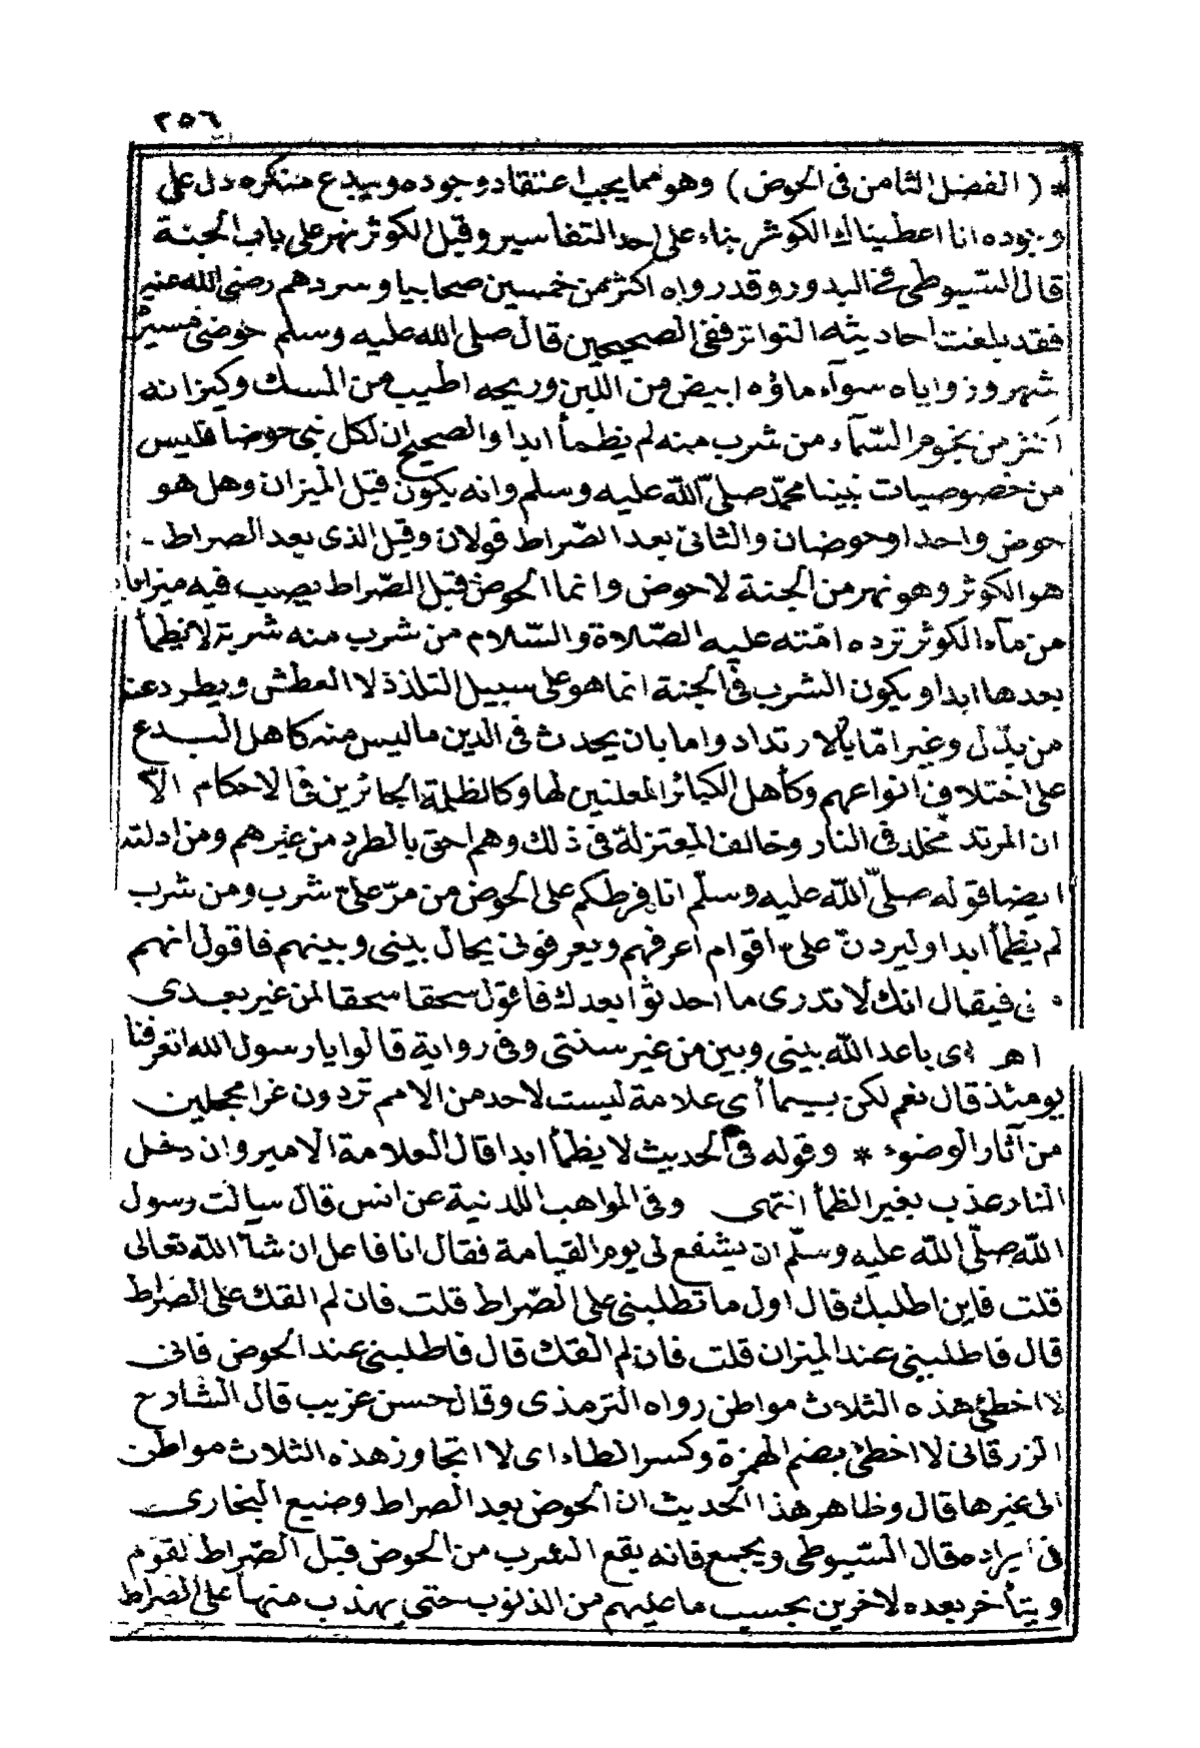 ٢٥٦
* ( الفصل الثامن فى الحوض ) وهو مما يجب اعتقاد وجوده ويبدع منكره دل على
وجوده انا اعطيناك الكوثر بناء على احد التفاسير وقيل الكوثر نهر على باب الجنة
قال السّيوطى فى البدور وقد رواه اكثر من خمسين صحابيا وسردهم رضى الله عنهم
فقد بلغت احاديثه التواتر ففى الصحيحين قال صلى الله عليه وسلم حوضى مسيرة
شهر وزواياه سوآء ماؤه ابيض من اللبن وريحه اطيب من المسك وكيزانه
اكثر من نجوم السّمآء من شرب منه لم يظمأ ابدا والصحيح ان لكل نبى حوضا فليس
من خصوصيات نبينا محمّد صلىّ الله عليه وسلم وانه يكون قبل الميزان وهل هو
حوض واحد او حوضان والثانى بعد الصّراط قولان وقيل الذى بعد الصراط -
هو الكوثر وهو نهر من الجنة لا حوض وانما الحوض قبل الصّراط يصب فيه ميزابان
من مآء الكوثر ترده امّته عليه الصّلاة والسّلام من شرب منه شربة لا يظمأ
بعدها ابدا ويكون الشرب فى الجنة انما هو على سبيل التلذذ لا العطش ويطرد عنه
من بدّل وغير امّا بالارتداد واما بان يحدث فى الدين ما ليس منه كاهل البدع
على اختلاف انواعهم وكأهل الكبائر المعلنين لها وكالظلمة الجائرين فى الاحكام الاّ
ان المرتد مخلد فى النار وخالف المعتزلة فى ذلك وهم احق بالطرد من غيرهم ومن ادلته
ايضا قوله صلىّ الله عليه وسلّم انا فرطكم على الحوض من مرّ علىّ شرب ومن شرب
لم يظمأ ابدا وليردنّ علىّ اقوام اعرفهم ويعرفونى يحال بينى وبينهم فاقول انهم
منى فيقال انك لا تدرى ما احدثوا بعدك فاقول سحقا سحقا لمن غير بعدى
اهـ اى باعد الله بينى وبين من غير سنتى وفى رواية قالوا يا رسول الله اتعرفنا
يومئذ قال نعم لكم سيما أى علامة ليست لاحد من الامم تردون غرا محجلين
من آثار الوضوء * وقوله فى الحديث لا يظمأ ابدا قال العلامة الامير وان دخل
النار عذب بغير الظمأ انتهى وفى المواهب اللدنية عن انس قال سالت رسول
الله صلّى الله عليه وسلّم ان يشفع لى يوم القيامة فقال انا فاعل ان شآ الله تعالى
قلت فاين اطلبك قال اول ما تطلبنى على الصّراط قلت فان لم القك على الصّراط
قال فاطلبنى عند الميزان قلت فان لم القك قال فاطلبنى عند الحوض فانى
لا اخطئ هذه الثلاث مواطن رواه الترمذى وقال حسن غريب قال الشارح
الزرقانى لا اخطئ بضم الهمزة وكسر الطاء اى لا اتجاوز هذه الثلاث مواطن
الى غيرها قال وظاهر هذا الحديث ان الحوض بعد الصراط وصنيع البخارى
فى ايراده قال السّيوطى ويجمع فانه يقع الشرب من الحوض قبل الصّراط لقوم
ويتأخر بعده لاخرين بحسب ما عليهم من الذنوب حتى يهذب منها على الصراط